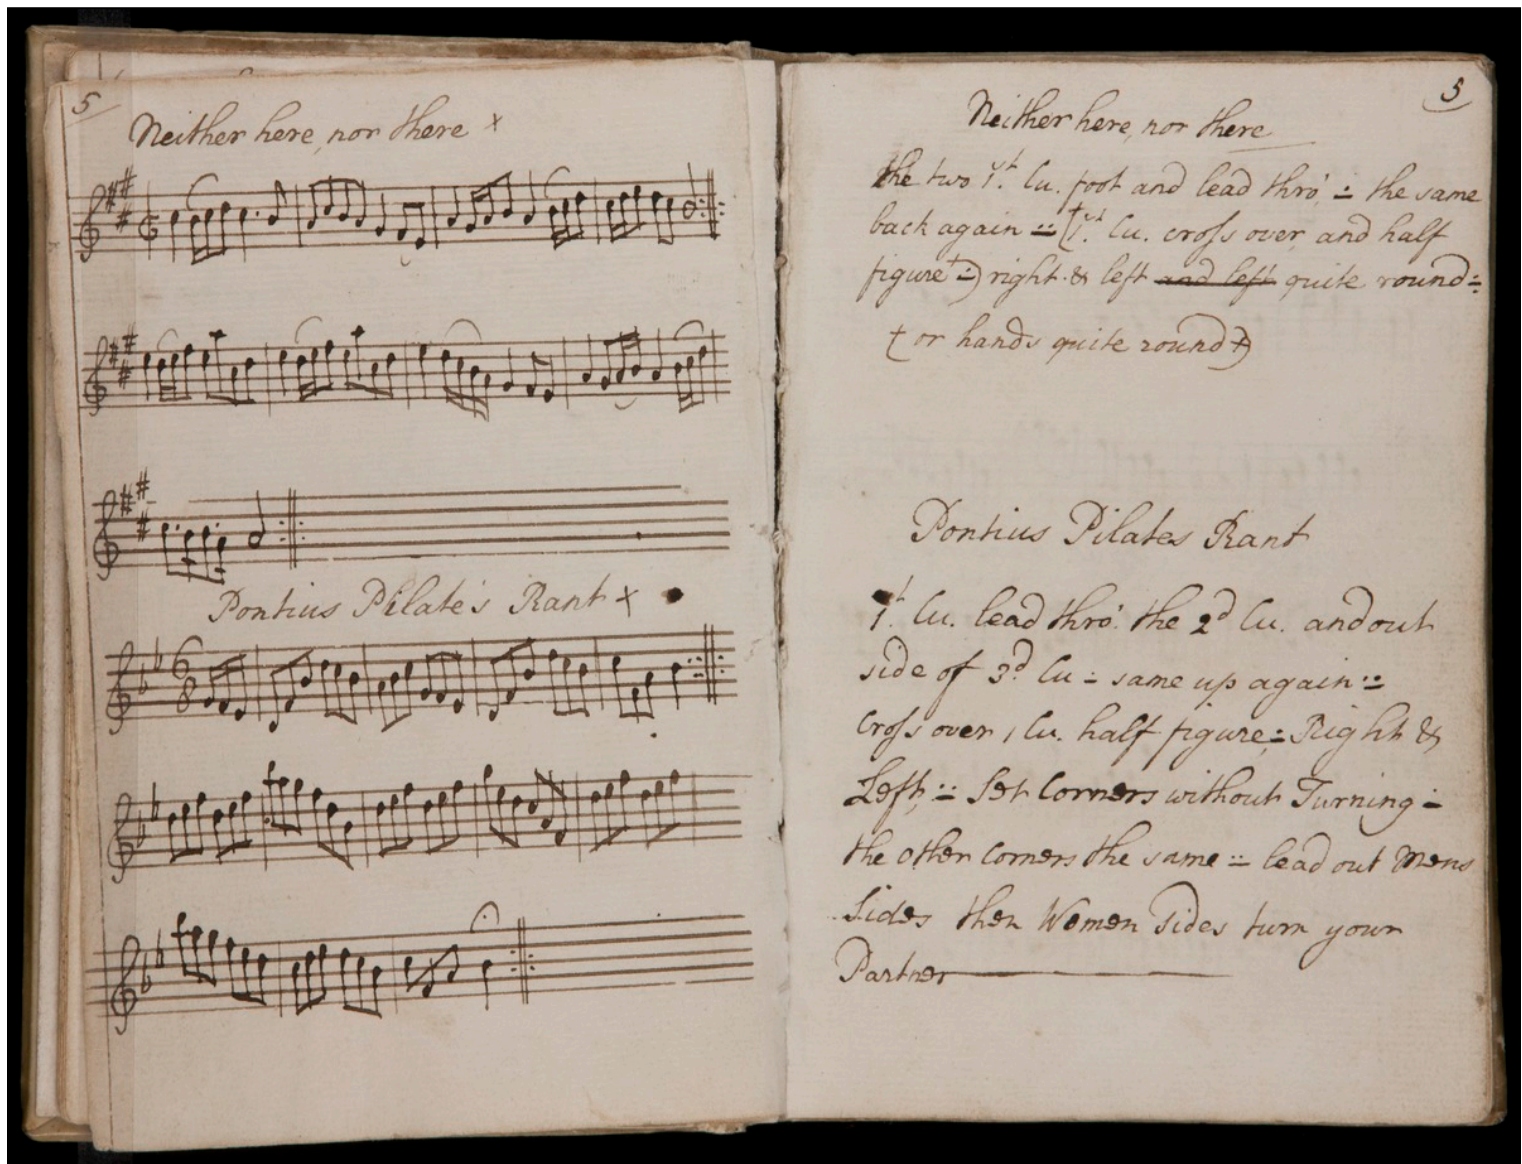 5
Neither here, nor there x
Pontius Pilate's Rant x
5
Neither here, nor there
the two 1.st Cu. foot and lead thro' ÷ the same
back again :÷ (†1.st Cu. cross over and half
figure† ÷) right & left and left quite round ÷
(† or hands quite round †)
Pontius Pilates Rant
1.t Cu. lead thro'. the 2d Cu. and out
side of 3.d Cu ÷ same up again :÷
Cross over 1 Cu. half figure ÷ Right &
Left, :÷ Set Corners without Turning ÷
the other Corners the same :÷ lead out Mens
Sides then Women Sides turn your
Partner